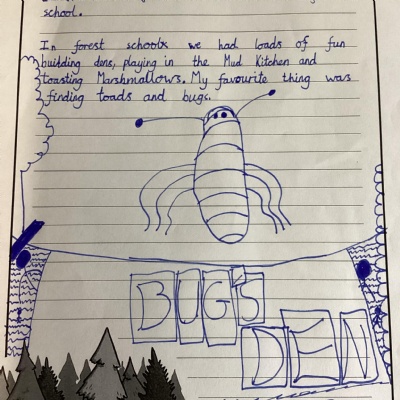 school.
In forest schools we had loads of fun
building dens, playing in the Mud Kitchen and
toasting Marshmallows. My favourite thing was
finding toads and bugs.
BUG'S
DEN